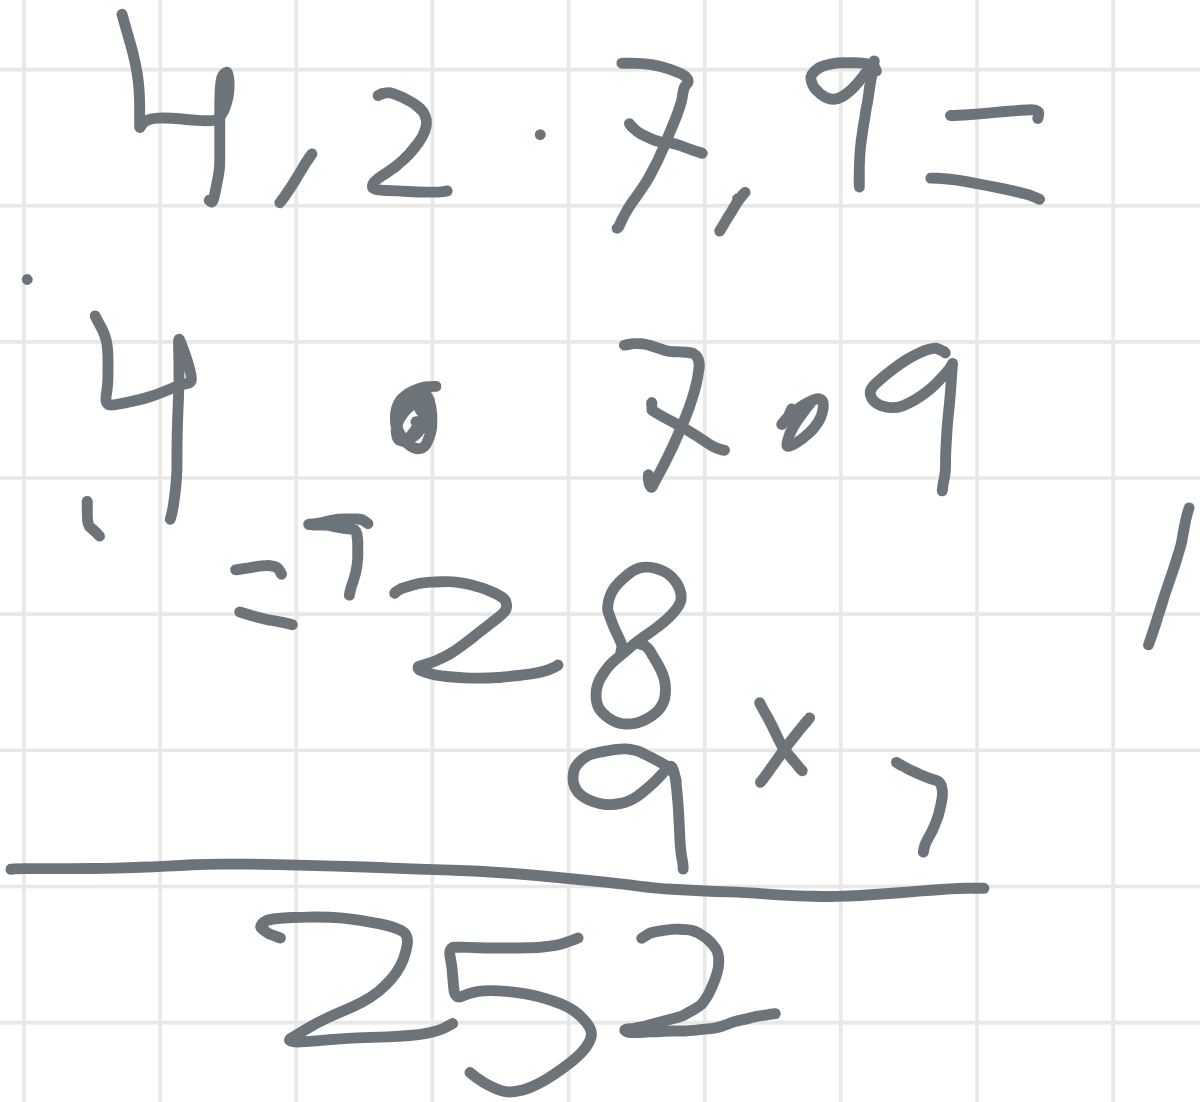 4,2 · 7,9 =
4 · 7 · 9
= 28
9 × 7
252